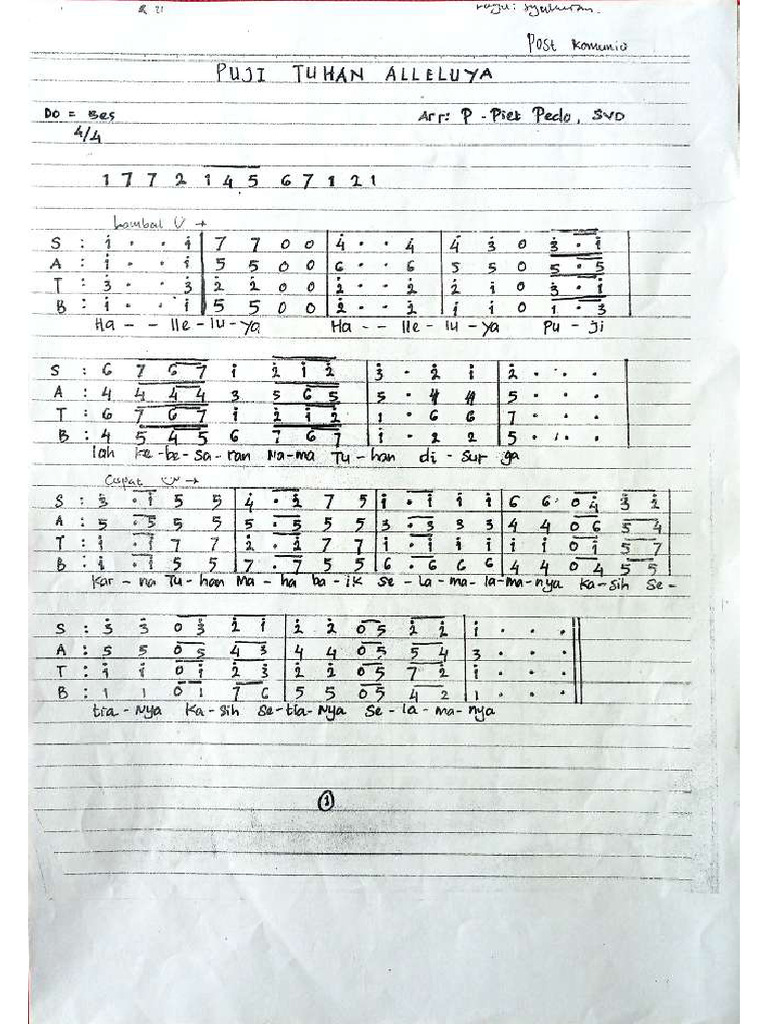 Lagu: Syukuran
Post Komunio
PUJI TUHAN ALLELUYA
Do = Bes
Arr: P - Piet Pedo, SVD
4/4
1 7 7 2 1 4 5 6 7 1 2 1
Lambat
S : i . . i | 7 7 0 0 | 4 . . 4 | 4 3 0 3 . i |
A : i . . i | 5 5 0 0 | 6 . . 6 | 5 5 0 5 . 5 |
T : 3 . . 3 | 2 2 0 0 | 2 . . 2 | 2 i 0 3 . i |
B : i . . i | 5 5 0 0 | 2 . . 2 | i i 0 1 . 3 |
Ha - - lle - lu - ya Ha - - lle - lu - ya Pu - ji
S : 6 7 6 7 i 2 i 2 | 3 . 2 i | 2 . . .
A : 4 4 4 4 3 5 6 5 | 5 . 4 4 | 5 . . .
T : 6 7 6 7 i 2 i 2 | 1 . 6 6 | 7 . . .
B : 4 5 4 5 6 7 6 7 | i . 2 2 | 5 . . .
lah ke - be - sa - ran Na - ma Tu - han di - Sur ga
Cepat
S : 3 . i 5 5 | 4 . 2 7 5 | i . i i i | 6 6 0 4 3 2
A : 5 . 5 5 5 | 5 . 5 5 5 | 3 . 3 3 3 | 4 4 0 6 5 4
T : i . i 7 7 | 2 . 2 7 7 | i . i i i | i i 0 1 5 7
B : i . i 5 5 | 7 . 7 5 5 | 6 . 6 6 6 | 4 4 0 4 5 5
Kar - na Tu - han Ma - ha ba - ik Se - la - ma - la - ma - nya Ka - sih Se -
S : 3 3 0 3 2 i | 2 2 0 5 2 2 | i . . .
A : 5 5 0 5 4 3 | 4 4 0 5 5 4 | 3 . . .
T : i i 0 i 2 3 | 2 2 0 5 7 2 | i . . .
B : 1 1 0 1 7 6 | 5 5 0 5 4 2 | 1 . . .
tia - Nya Ka - Sih Se - tia - Nya Se - la - ma - nya
1